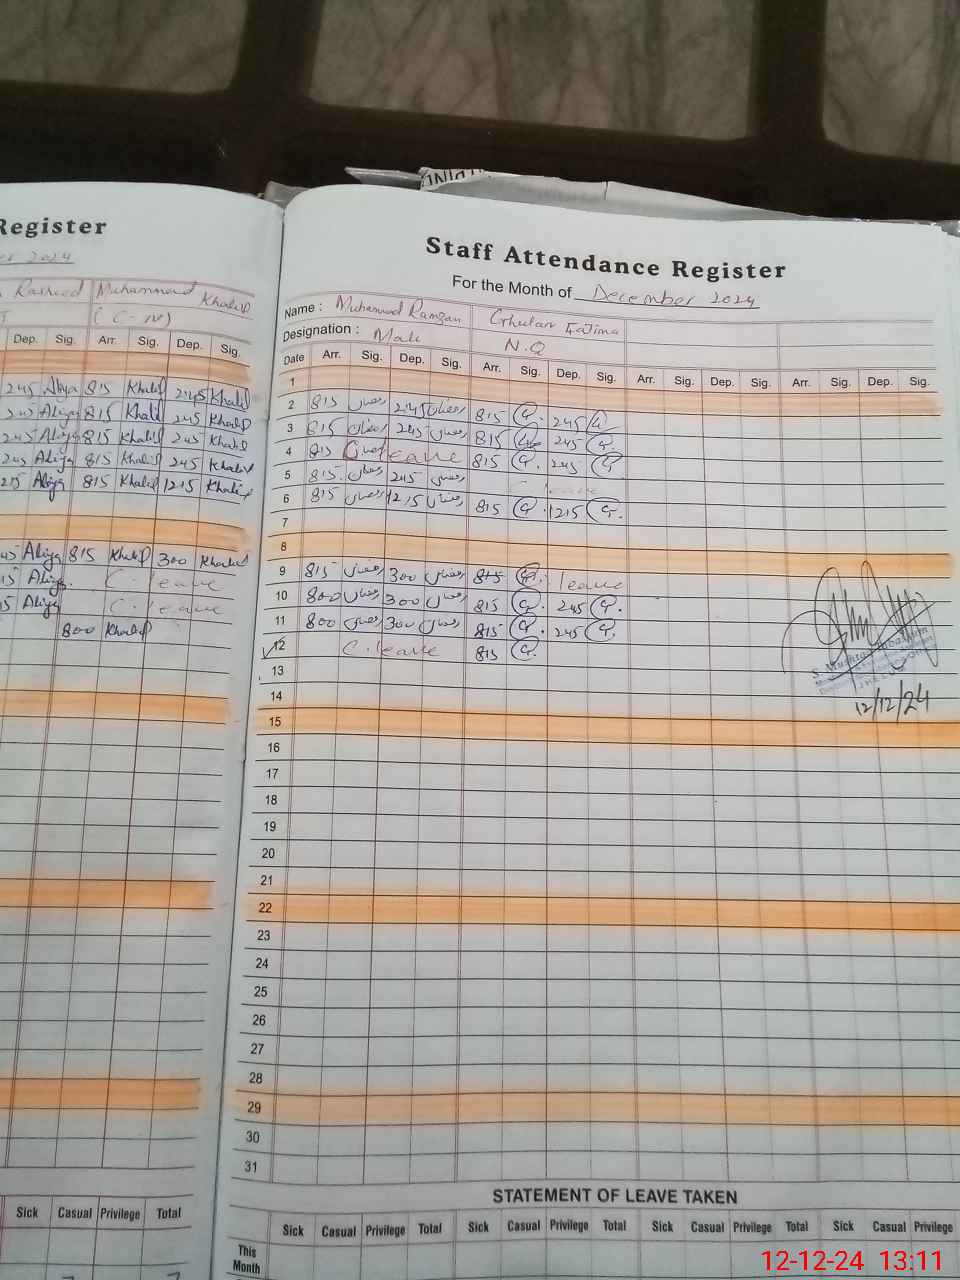 Register
Staff Attendance Register
For the Month of December 2024
er 2024
Rasheed Muhammad Khalid
(C-IV)
Dep. Sig. Arr. Sig. Dep. Sig.
245 Aliya 815 Khalid 245 Khalid
245 Aliya 815 Khalid 245 Khalid
245 Aliya 815 Khalid 245 Khalid
245 Aliya 815 Khalid 245 Khalid
1215 Aliya 815 Khalid 1215 Khalid
245 Aliya 815 Khalid 300 Khalid
15 Aliya C-leave
15 Aliya C-leave
800 Khalid
Sick Casual Privilege Total
Name : Muhammad Ramzan Ghulam Fatima
Designation : Mali N.Q
Date Arr. Sig. Dep. Sig. Arr. Sig. Dep. Sig. Arr. Sig. Dep. Sig. Arr. Sig. Dep. Sig.
1
2 815 رمضان 245 رمضان 815 G. 245 G
3 815 رمضان 245 رمضان 815 G 245 G.
4 815 رمضان C leave 815 G. 245 G
5 815. رمضان 245 رمضان C leave
6 815 رمضان 1215 رمضان 815 G. 1215 G.
7
8
9 815 رمضان 300 رمضان 815 G. leave
10 800 رمضان 300 رمضان 815 G. 245 G.
11 800 رمضان 300 رمضان 815 G. 245 G.
12 C-leave 815 G.
13
12/12/24
14
15
16
17
18
19
20
21
22
23
24
25
26
27
28
29
30
31
STATEMENT OF LEAVE TAKEN
Sick Casual Privilege Total Sick Casual Privilege Total Sick Casual Privilege Total Sick Casual Privilege
This Month
12-12-24 13:11